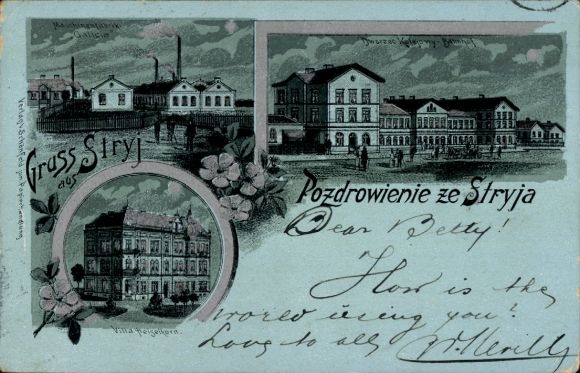 Maschinenfabrik
"Galicia"
Dworzec Kolejowy Bahnhof
Gruss aus Stryj
Pozdrowienie ze Stryja
Villa Heiselkorn.
Dear Betty!
How is the
world using you?
Love to all